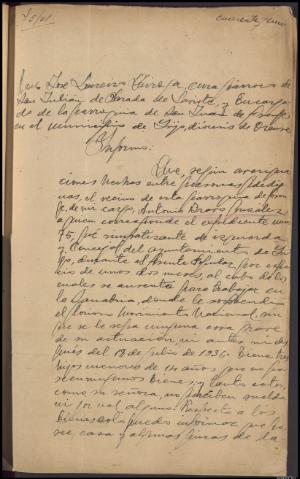 cuarenta y uno
José Lorenzo cura párroco de
San Julián de Parada de y Encarga
do de la parroquia de San Juan de
en el municipio de diócesis de Orense
Informo:
Que, según averigua
ciones hechas entre personas fidedig
nas, el vecino de esta parroquia de
de mi cargo, Antonio González
a quien corresponde el expediente núm
75, fué simpatizante de izquierdas
y Concejal del ayuntamiento de
durante el Frente Popular por espa
cio de unos dos meses, al cabo de los
cuales se ausentó para trabajar en
la donde le sorprendió
el Movimiento Nacional, sin
que se le sepa ninguna cosa grave
de su actuación, ni antes ni des
pués del 18 de Julio de 1936. Tiene tres
hijos menores de 14 años que no po
seen ningunos bienes, y tanto estos,
como su señora, no perciben sueldo
ni jornal alguno. Respecto a los
bienes solo puedo informar que po
see, casa y algunas fincas de la-